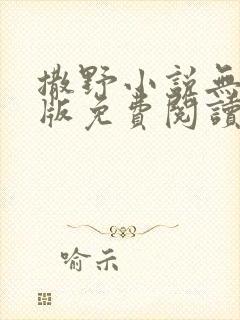 撒野小說無
版免費閱讀
喻示